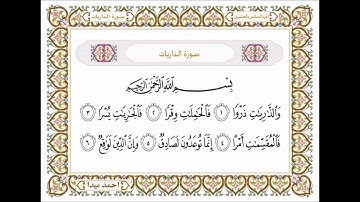 سورة الذاريات
الجزء السادس والعشرين
سورة الذاريات
بِسْمِ اللَّهِ الرَّحْمَٰنِ الرَّحِيمِ
وَالذَّارِيَاتِ ذَرْوًا ١ فَالْحَامِلَاتِ وِقْرًا ٢ فَالْجَارِيَاتِ يُسْرًا ٣
فَالْمُقَسِّمَاتِ أَمْرًا ٤ إِنَّمَا تُوعَدُونَ لَصَادِقٌ ٥ وَإِنَّ الدِّينَ لَوَاقِعٌ ٦
احمد ميدا